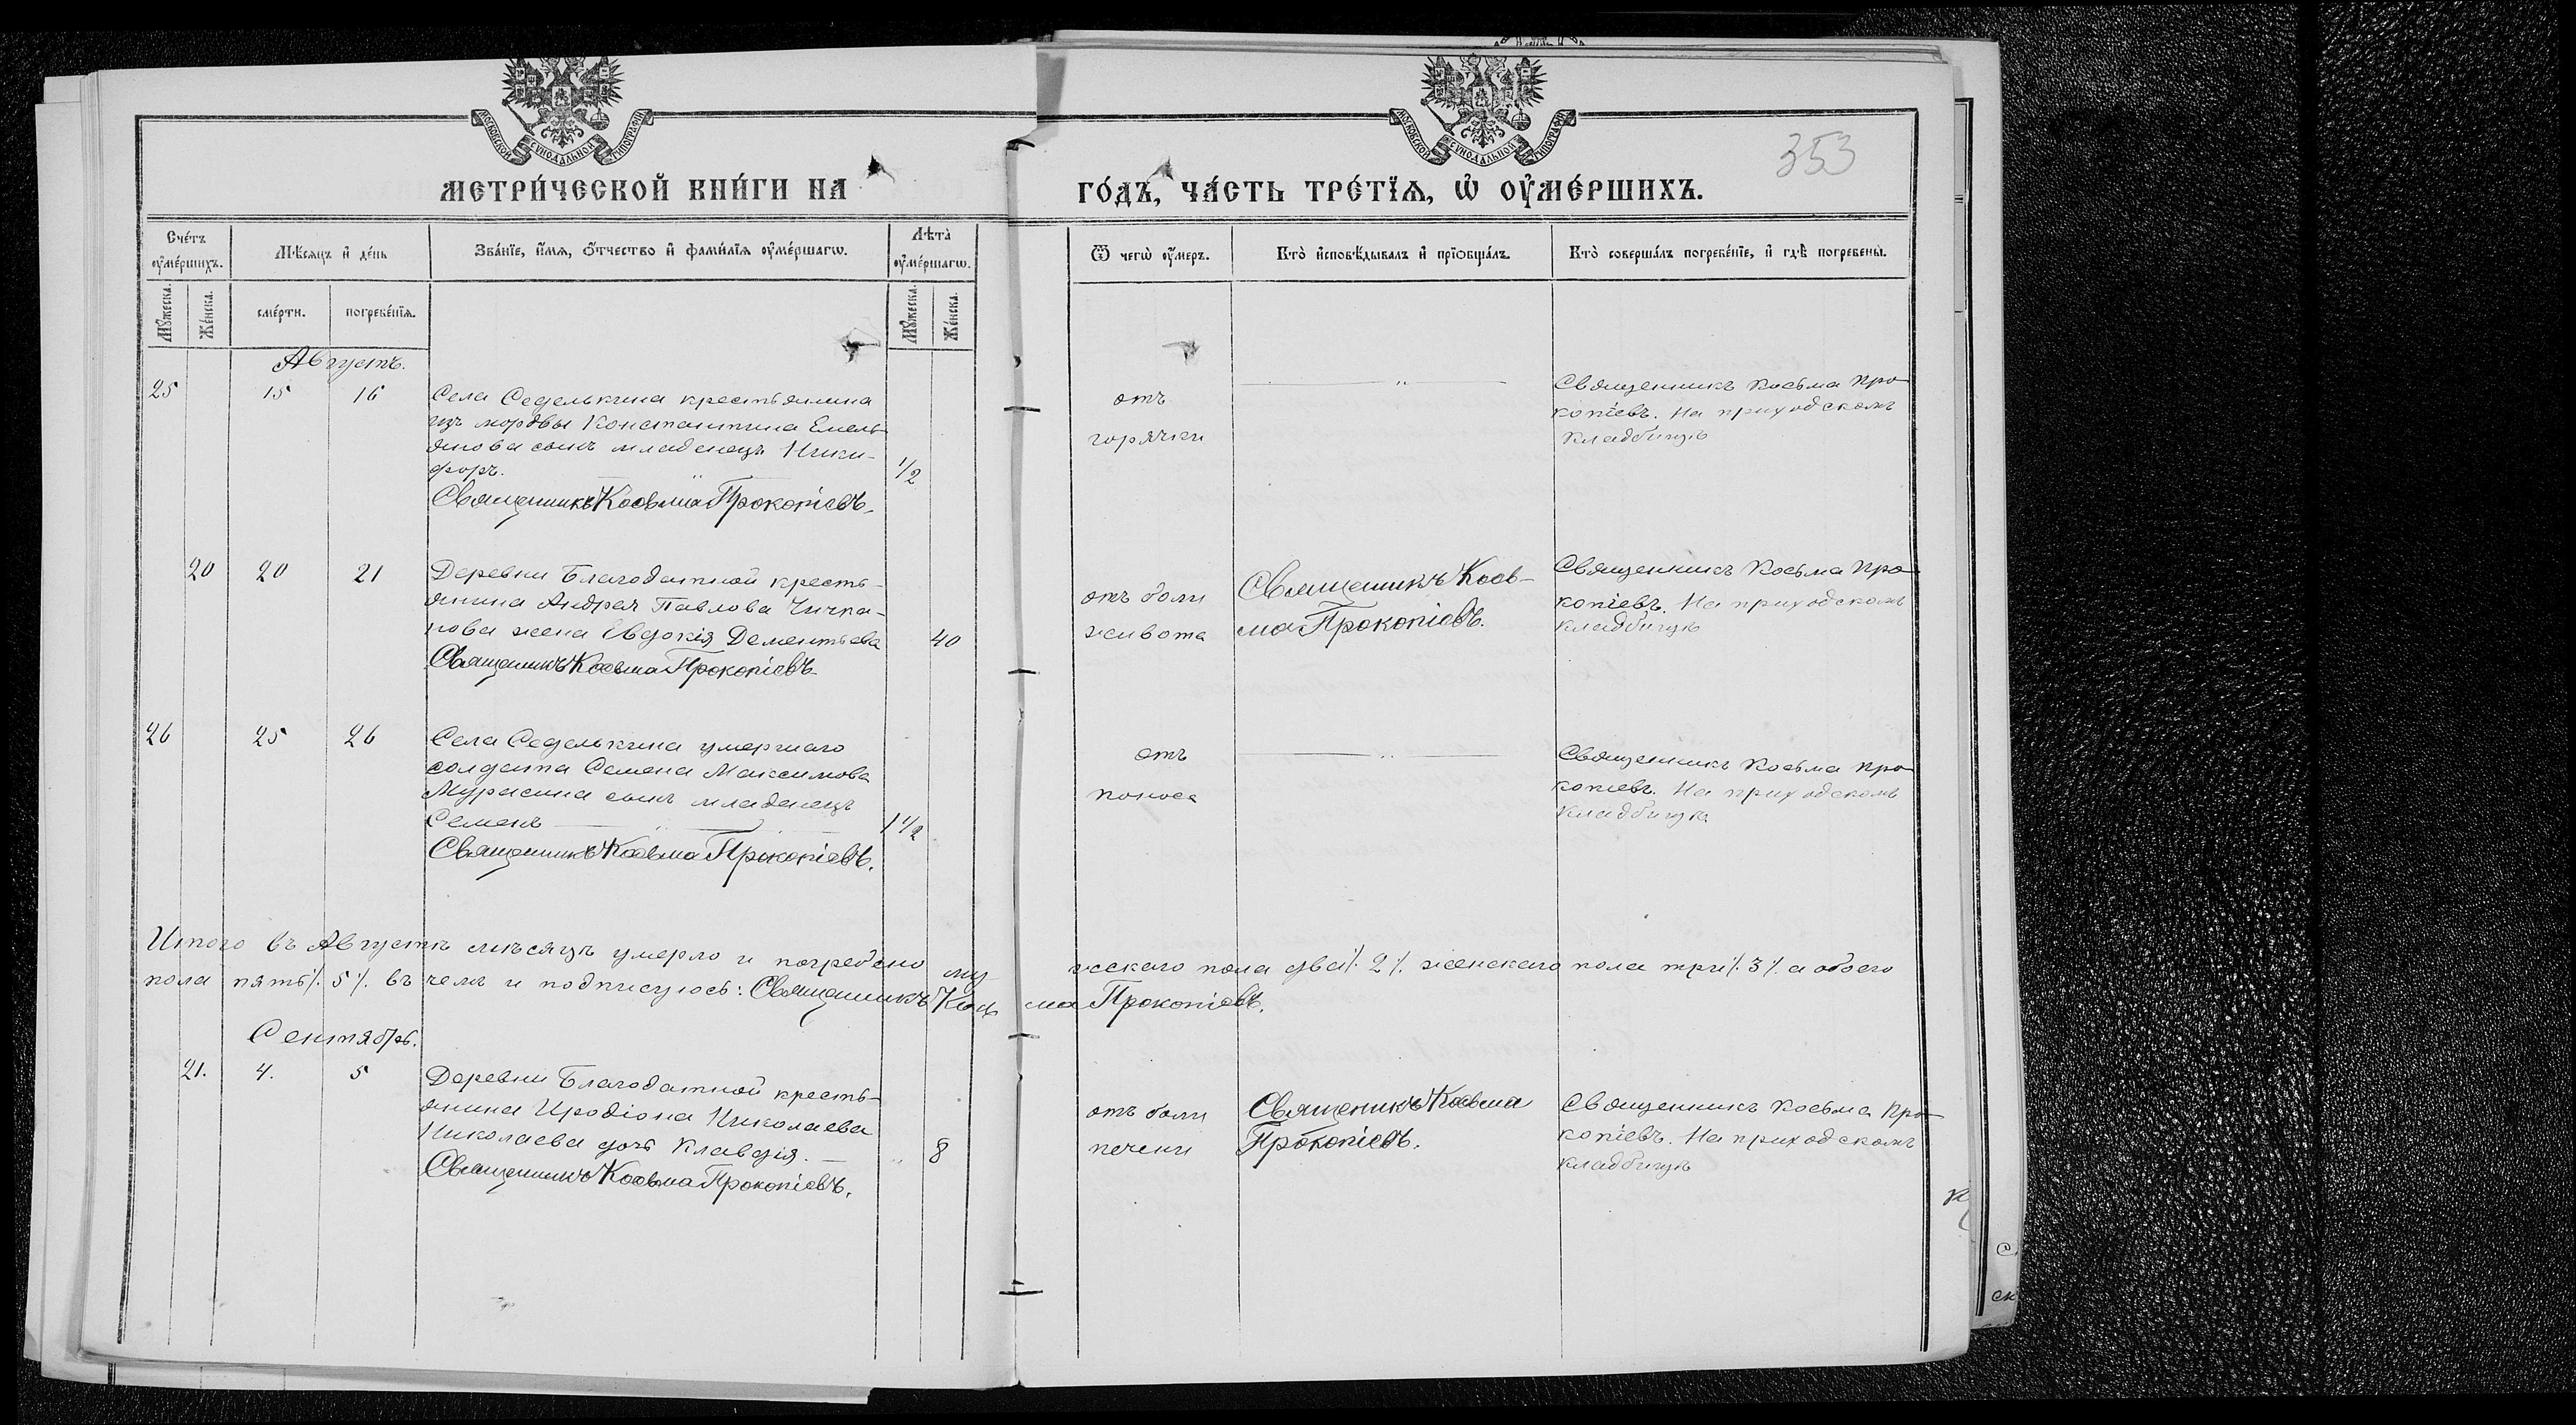 МОСКОВСКОЙ СѴНОДАЛЬНОЙ ТИПОГРАФІИ
МОСКОВСКОЙ СѴНОДАЛЬНОЙ ТИПОГРАФІИ
353
МЕТРИ́ЧЕСКОЙ КНИ́ГИ НА ГО́ДЪ, ЧА́СТЬ ТРЕ́ТЇѦ, Ѡ҆ ОУ҆МЕ́РШИХЪ.
Сче́тъ оу҆ме́ршихъ.
Мѣ́сяцъ и҆ де́нь
Зва́нїе, и҆́мя, ѻ҆́тчество и҆ фами́лїя оу҆ме́ршагѡ.
Лѣ́та оу҆ме́ршагѡ.
Ѿ чегѡ̀ оу҆́меръ.
Кто̀ и҆сповѣ́дывалъ и҆ прїобща́лъ.
Кто̀ соверша́лъ погребе́нїе, и҆ гдѣ̀ погребены̀.
Мꙋ́жеска.
Же́нска.
сме́рти.
погребе́нїя.
Мꙋ́жеска.
Же́нска.
Августъ.
25 15 16
Села Седелькина крестьянина
изъ мордвы Константина Емель-
янова сынъ младенецъ Ники-
форъ. — " — 1/2
Священникъ Косьма Прокопіевъ.
отъ
горячки
— " —
Священникъ Косьма Про-
копіевъ. На приходскомъ
кладбищѣ
20 20 21
Деревни Благодатной кресть-
янина Андрея Павлова Чичка-
нова жена Евдокія Дементьева 40
Священникъ Косьма Прокопіевъ
отъ боли
живота
Священникъ Кось-
ма Прокопіевъ.
Священникъ Косьма Про-
копіевъ. На приходскомъ
кладбищѣ
26 25 26
Села Седелькина умершаго
солдата Семена Максимова
Мурасина сынъ младенецъ
Семенъ — " — 1 1/2
Священникъ Косьма Прокопіевъ.
отъ
поноса
— " —
Священникъ Косьма Про-
копіевъ. На приходскомъ
кладбищѣ
Итого въ Августѣ мѣсяцѣ умерло и погребено мужескаго пола два ./. 2 ./. женскаго пола три ./. 3 ./. а обоего
пола пять ./. 5 ./. въ чемъ и подписуюсь: Священникъ Косьма Прокопіевъ.
Сентябрь.
21. 4. 5
Деревни Благодатной кресть-
янина Иродіона Николаева
Николаева дочь Клавдія. — " 8
Священникъ Косьма Прокопіевъ.
отъ боли
печени
Священникъ Косьма
Прокопіевъ.
Священникъ Косьма Про-
копіевъ. На приходскомъ
кладбищѣ